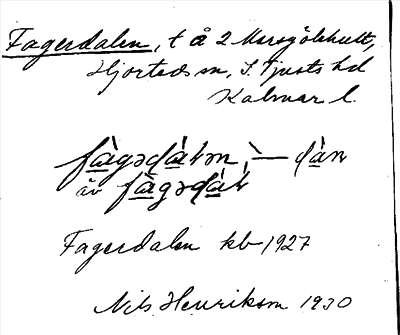 Fagerdalen, t å 2 Marsjöhult,
Hjorteds sn, S. Tjusts hd
Kalmar l.
fàgədàlən, — dàn
äv fàgədàl
Fagerdalen kb 1927
Nils Henrikson 1930